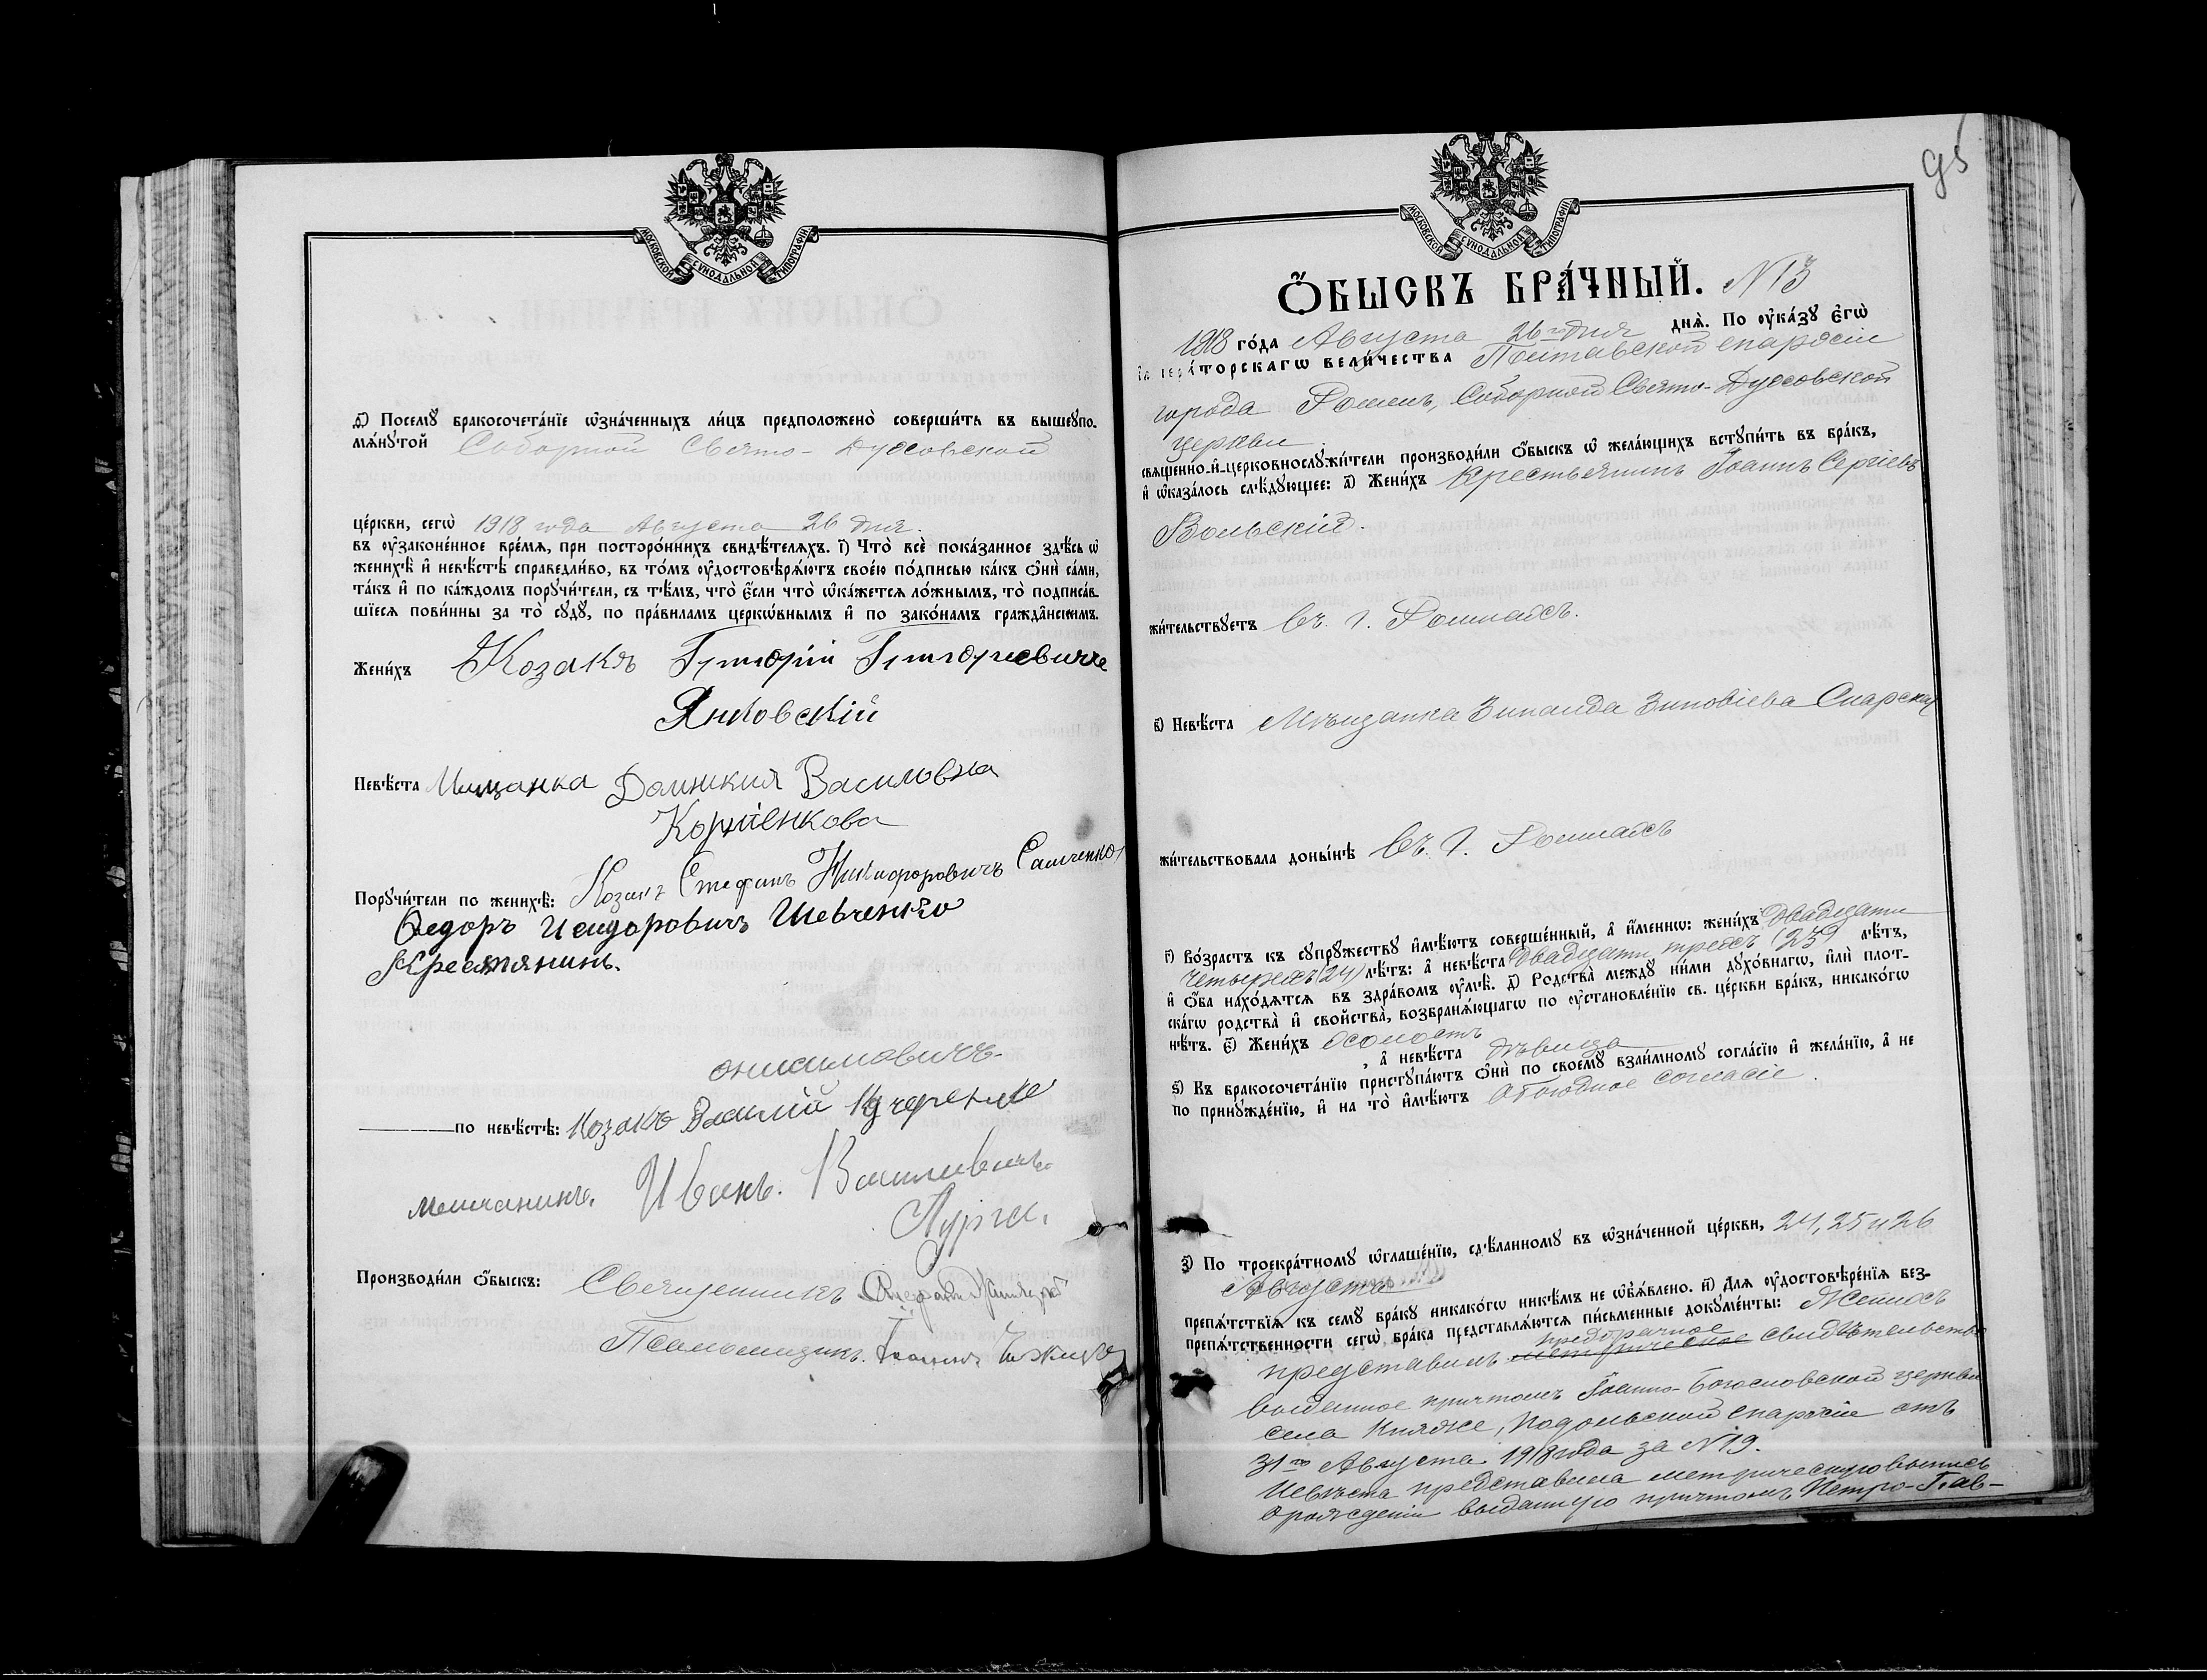 МОСКОВСКОЙ СѴНОДАЛЬНОЙ ТИПОГРАФІИ
Ѳ҃) Посемꙋ бракосочета́нїе ѡ҆зна́ченныхъ ли́цъ предположено̀ соверши́ть въ вышеꙋпо-
мѧ́нꙋтой Соборной Свято-Духовской
це́ркви, сегѡ̀ 1918 года Августа 26 дня.
въ ᲂу҆законе́нное вре́мѧ, при посторо́ннихъ свидѣ́телѧхъ. і҃) Что̀ всѐ пока́занное здѣ́сь ѡ҆
женихѣ̀ и҆ невѣ́стѣ справедли́во, въ то́мъ ᲂу҆достовѣрѧ́ютъ свое́ю по́дписью ка́къ ѻ҆нѝ са́ми,
та́къ и҆ по ка́ждомъ порꙋчи́тели, съ тѣ́мъ, что̀ є҆́сли что̀ ѡ҆ка́жетсѧ ло́жнымъ, то̀ подписа́в-
шїесѧ пови́нны за то̀ сꙋдꙋ̀, по пра́виламъ церкѡ́внымъ и҆ по зако́намъ гражда̑нскимъ.
Жени́хъ Козакъ Григорій Григориевичъ
Янковскій
Невѣ́ста Мищанка Домникия Василовна
Корніенкова
Порꙋчи́тели по женихѣ̀: Козакъ Стефанъ Никифоровичъ Самченко
Федоръ Исидоровичъ Шевченко
Крестянинъ.
онисимовичъ
по невѣ́стѣ: Козакъ Василій Кучеренко
мешчанинъ. Иванъ. Василивичъ
Производи́ли ѻ҆́быскъ: Священникъ
Псаломщикъ. Іоаннъ
95
МОСКОВСКОЙ СѴНОДАЛЬНОЙ ТИПОГРАФІИ
Ѻ҆́БЫСКЪ БРА́ЧНЫЙ. N 13
1918 го́да Августа 26 го дня днѧ̀. По ᲂу҆ка́зꙋ Є҆гѡ̀
І҆мпера́торскагѡ вели́чества Полтавской епархіи
города Ромен, Соборной Свято-Духовской
церкви
свѧще́нно-и҆-церковнослꙋжи́тели производи́ли ѻ҆́быскъ ѡ҆ жела́ющихъ встꙋпи́ть въ бра́къ,
и҆ ѡ҆каза́лось слѣ́дꙋющее: а҃) Жени́хъ Крестьянинъ Іоаннъ Сергіевъ
Вольскій.
жи́тельствꙋетъ въ г. Ромнахъ.
в҃) Невѣ́ста Мѣщанка Зинаида Зиновіева
жи́тельствовала доны́нѣ въ г. Ромнахъ
г҃) Во́зрастъ къ сꙋпрꙋ́жествꙋ и҆мѣ́ютъ соверше́нный, а҆ и҆́меннѡ: жени́хъ двадцати
четырехъ (24) лѣ́тъ: а҆ невѣ́ста двадцати трехъ (23) лѣ́тъ,
и҆ ѻ҆́ба нахо́дѧтсѧ въ здра́вомъ ᲂу҆мѣ̀. д҃) Родства̀ междꙋ̀ ни́ми дꙋхо́внагѡ, и҆лѝ плот-
ска́гѡ родства̀ и҆ свойства̀, возбранѧ́ющагѡ по ᲂу҆становле́нїю св. це́ркви бра́къ, никако́гѡ
нѣ́тъ. є҃) Жени́хъ холостъ
, а҆ невѣ́ста дѣвица
ѕ҃) Къ бракосочета́нїю пристꙋпа́ютъ ѻ҆нѝ по своемꙋ̀ взаи́мномꙋ согла́сїю и҆ жела́нїю, а҆ не
по принꙋжде́нїю, и҆ на то̀ и҆мѣ́ютъ обоюдное согласіе.
з҃) По троекра́тномꙋ ѡ҆глаше́нїю, сдѣ́ланномꙋ въ ѡ҆зна́ченной це́ркви, 24, 25 и 26
Августа
препѧ́тствїѧ къ семꙋ̀ бра́кꙋ никако́гѡ никѣ́мъ не ѡ҆б̾ѧ́влено. и҃) Длѧ ᲂу҆достовѣре́нїѧ без-
препѧ́тственности сегѡ̀ бра́ка представлѧ́ютсѧ пи́сьменные докꙋме́нты: Женихъ
предбрачное
представилъ метрическое свидѣтельство
выданное причтомъ Іоанно-Богословской церкви
села Княже, Подольской епархіи отъ
31 го Августа 1918 года за N 19.
Невѣста представила метрическую выпись
о рожденіи выданную причтомъ Петро-Пав-